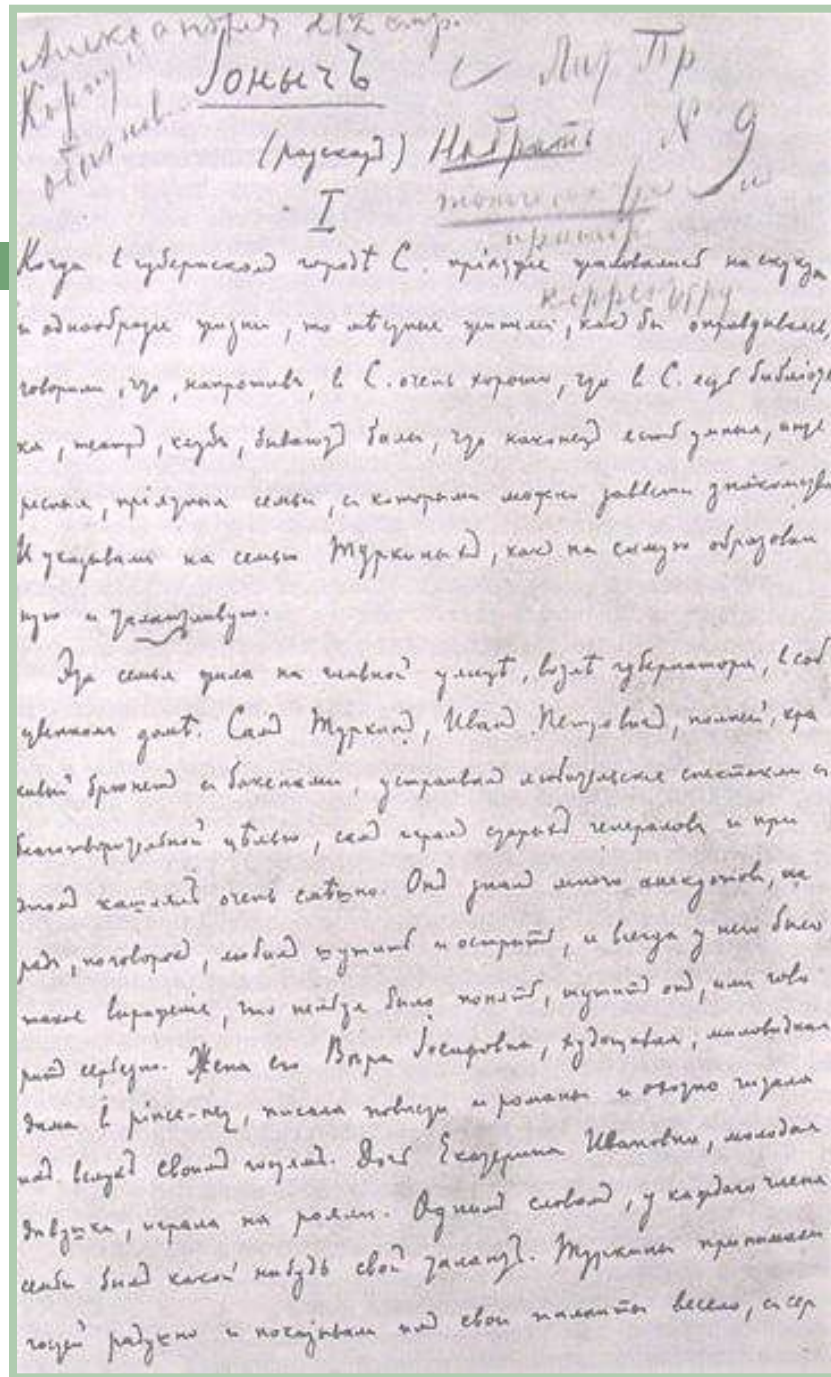 Іонычъ
(разсказъ) Набрать
№ 9
I
корректуру
Когда въ губернскомъ городѣ С. пріѣзжіе жаловались на скуку
и однообразіе жизни, то мѣстные жители, какъ бы оправдываясь,
говорили, что, напротивъ, въ С. очень хорошо, что въ С. есть библіоте
ка, театръ, клубъ, бываютъ балы, что наконецъ есть умныя, инте
ресныя, пріятныя семьи, съ которыми можно завести знакомства.
И указывали на семью Туркиныхъ, какъ на самую образован
ную и талантливую.
Эта семья жила на главной улицѣ, возлѣ губернатора, въ соб
ственномъ домѣ. Самъ Туркинъ, Иванъ Петровичъ, полный, кра
сивый брюнетъ съ бакенами, устраивалъ любительскіе спектакли съ
благотворительной цѣлью, самъ игралъ старыхъ генераловъ и при
этомъ кашлялъ очень смѣшно. Онъ зналъ много анекдотовъ, ша
радъ, поговорокъ, любилъ шутить и острить, и всегда у него было
такое выраженіе, что нельзя было понять, шутитъ онъ, или гово
ритъ серьезно. Жена его Вѣра Іосифовна, худощавая, миловидная
дама въ pince-nez, писала повѣсти и романы и охотно читала
ихъ вслухъ своимъ гостямъ. Дочь Екатерина Ивановна, молодая
дѣвушка, играла на рояли. Однимъ словомъ, у каждаго члена
семьи былъ какой нибудь свой талантъ. Туркины принимали
гостей радушно и показывали имъ свои таланты весело, съ сер